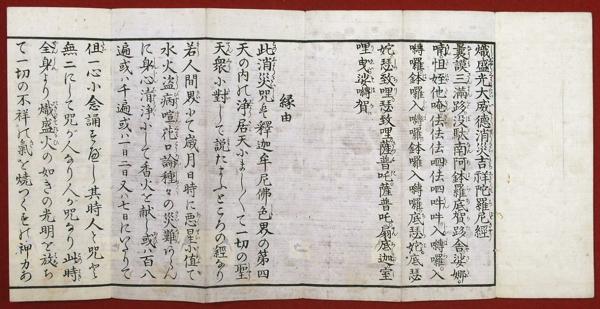 熾盛光大威徳消災吉祥陀羅尼經
曩謨三滿哆没駄南阿鉢囉底賀路舎娑娜
喃怛姪他唵佉佉佉呬佉呬吽吽入嚩囉入
嚩囉鉢囉入嚩囉鉢囉入嚩囉底瑟姹底瑟
姹瑟致哩瑟致哩薩普吒薩普吒扇底迦室
哩曳娑嚩賀
縁由
此消災咒は釋迦牟尼佛色界の第四
天の内の浄居天にましまして一切の聖
天衆に對して説たまふところの經なり
若人間界にて歳月日時に悪星に値て
水火盗病喧花口論種々の災難あらんに
に身心清浄にして香火を献し或ハ百八
遍或ハ千遍或ハ一日二日又ハ七日にいたりて
但一心に念誦すべし其時人と咒と
無二にして咒が人なり人が咒なり此時
全身より熾盛火の如きの光明を放ち
て一切の不祥の氣を焼つくすの神力あ